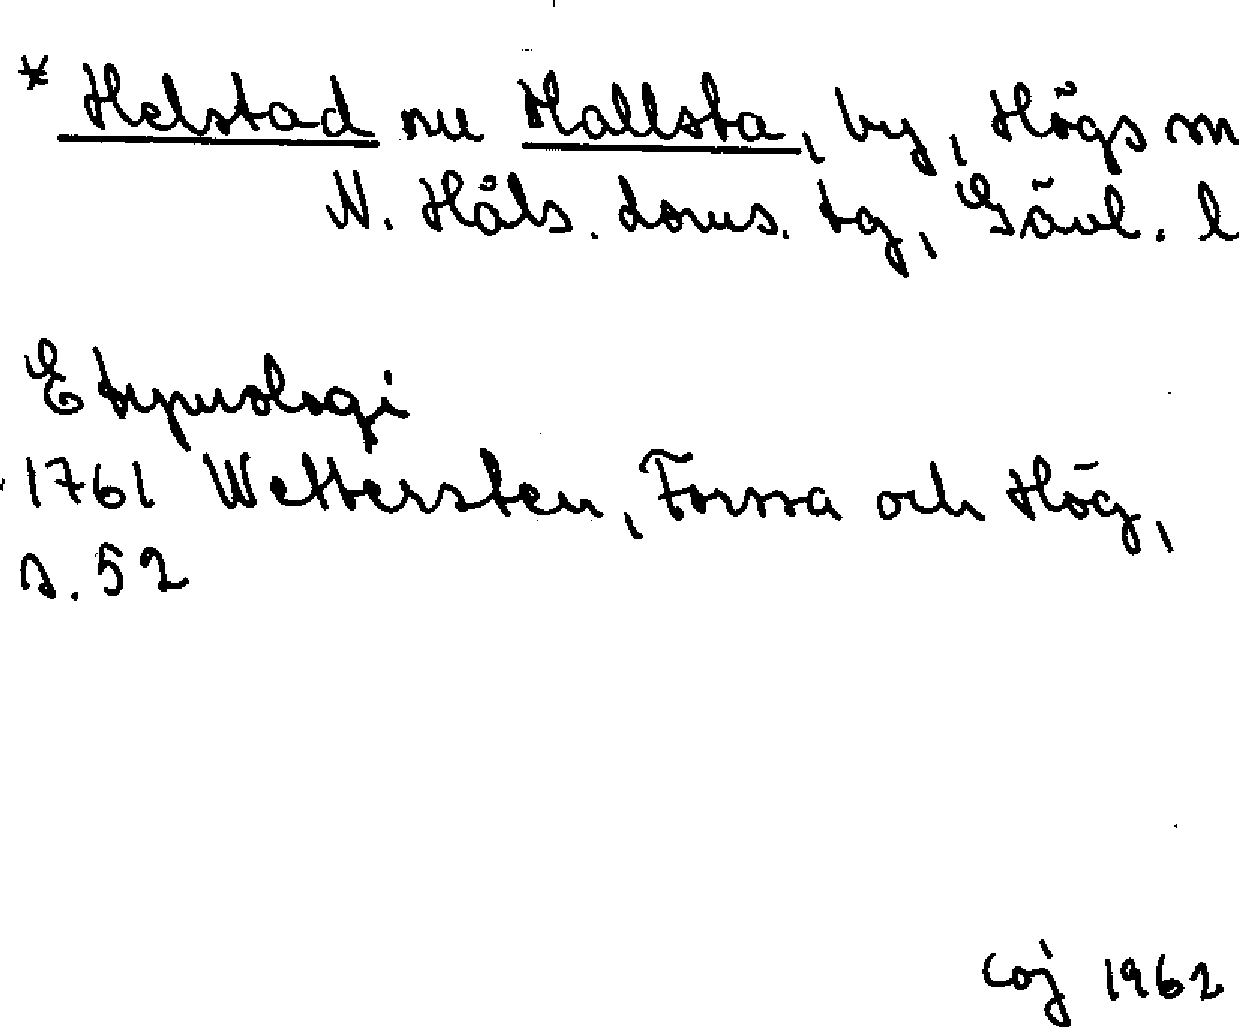 * Helstad nu Hallsta, by, Högs sn
N. Häls. doms. tg, Gävl. l
Etymologi
1761 Wettersten, Forssa och Hög,
s. 52
Coj 1962